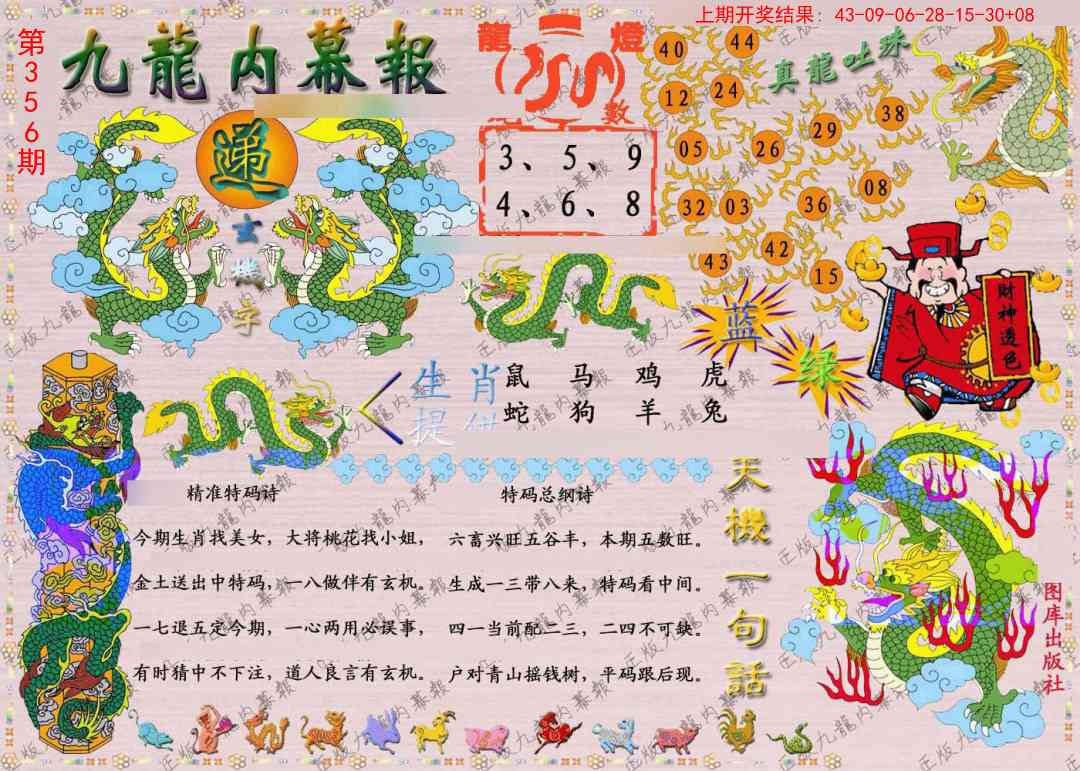 上期开奖结果：43-09-06-28-15-30+08
第356期
九龍内幕報
龍燈
数
3、5、9
4、6、8
真龍吐珠
40 44
12 24
29 38
05 26
32 03 36 08
42
43 15
递
玄
機
字
蓝
绿
财神透色
生肖
提供
鼠 马 鸡 虎
蛇 狗 羊 兔
精准特码诗
今期生肖找美女，大将桃花找小姐，
金土送出中特码，一八做伴有玄机。
一七退五定今期，一心两用必误事，
有时猜中不下注，道人良言有玄机。
特码总纲诗
六畜兴旺五谷丰，本期五数旺。
生成一三带八来，特码看中间。
四一当前配二三，二四不可缺。
户对青山摇钱树，平码跟后现。
天機一句話
图库出版社
正版九龍内幕報